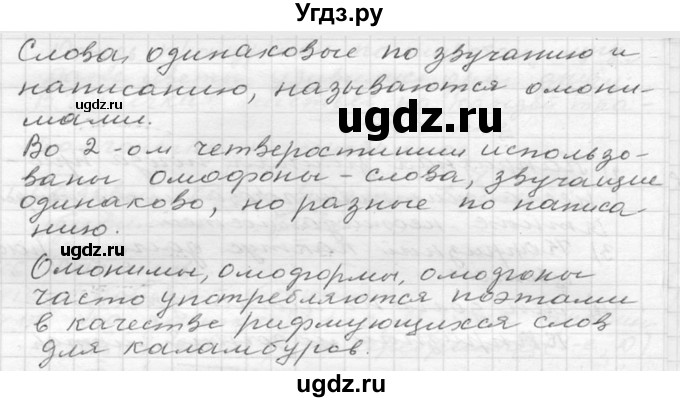 Угдз.ру
Слова, одинаковые по звучанию и
написанию, называются омони-
мами.
ugdz.ru
Во 2-ом четверостишии использо-
ваны омофоны - слова, звучащие
одинаково, но разные по написа-
нию.
ugdz.ru
Омонимы, омоформы, омофоны
часто употребляются поэтами
в качестве рифмующихся слов
для каламбуров.
ugdz.ru
ugdz.ru